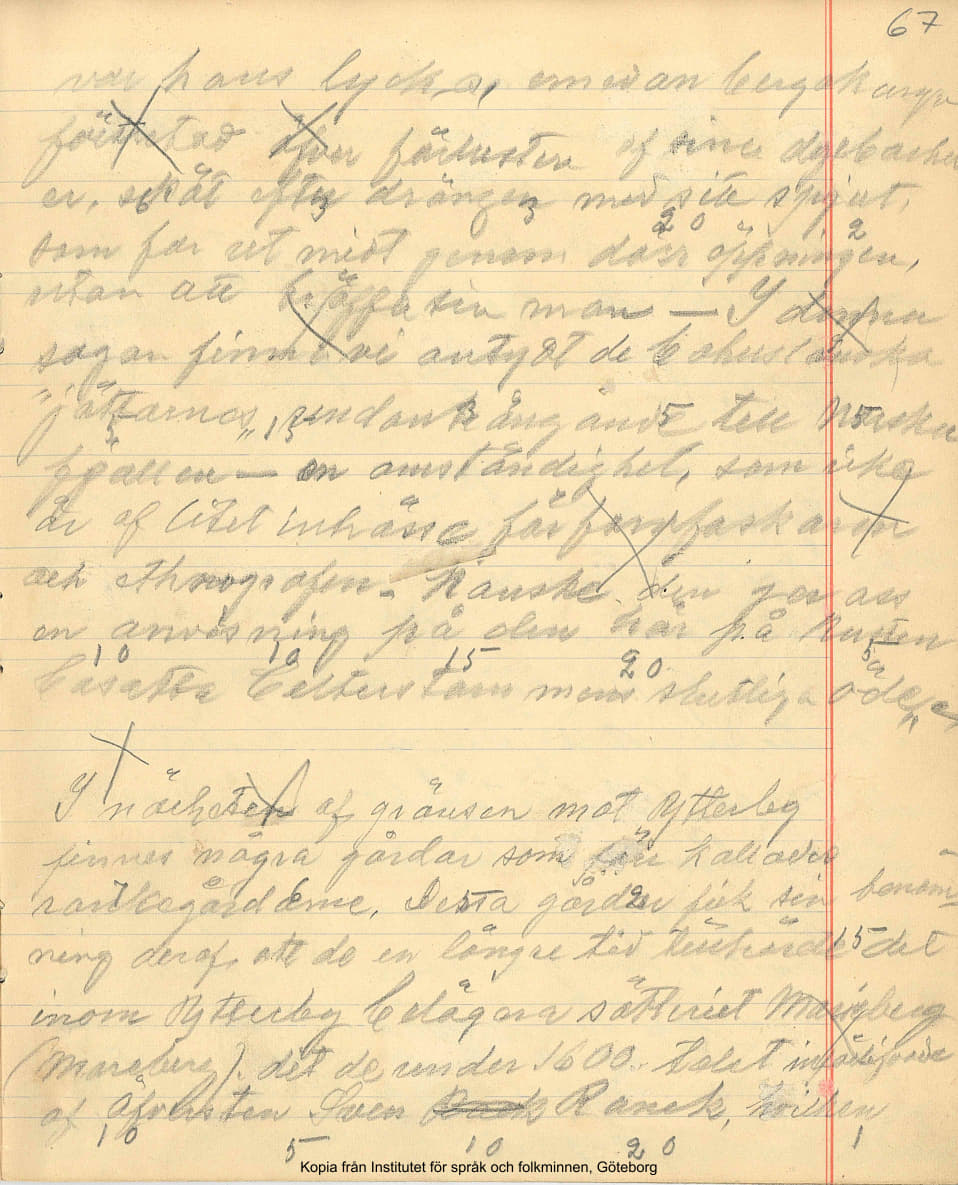 67
var hans lycka, emedan bergakungen
förbittrad öfver förlusten af sina dyrbarheter
er, sköt efter drängen med sitt spjut,
som for ut midt genom dörr öppningen,
utan att träffa sin man — I denna
sagan finna vi antydt de bohuslänska
"jättarnes" undanträngande till Norska
fjällen — en omständighet, som icke
är af litet intresse för fornforskaren
och ethnografen. Kanske den ger oss
en anvisning på den här på kusten
besatta Celterstammens slutliga öde."
I närheten af gränsen mot Ytterby
finnes några gårdar som kallades
rankegårdarne. Dessa gårdar fick sin benäm-
ning deraf, att de en längre tid tillhörde det
inom Ytterby belägna säteriet Marieberg
(Mareberg). det de under 1600. talet införlifvades
af öfversten Sven Ranck, hvilken
10 5 10 20 1
Kopia från Institutet för språk och folkminnen, Göteborg